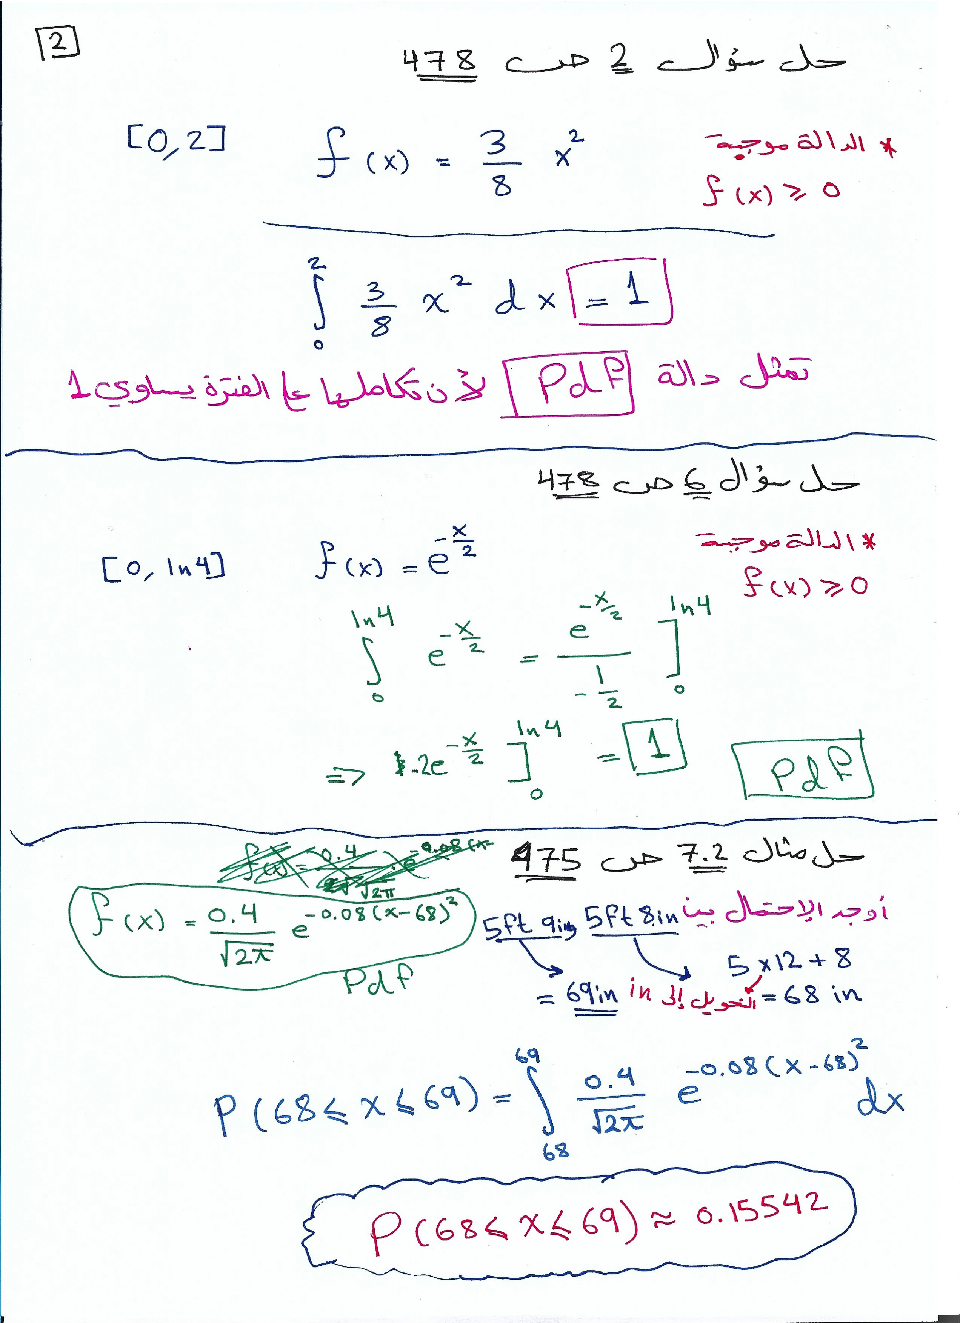 2
حل سؤال 2 ص 478
[0,2] f(x) = 3/8 x²
* الدالة موجبة
f(x) ⩾ 0
∫₀² 3/8 x² dx = 1
تمثل دالة Pdf لأن تكاملها على الفترة يساوي 1
حل سؤال 6 ص 478
* الدالة موجبة
[0, ln4] f(x) = e^(-x/2)
f(x) ⩾ 0
∫₀^ln4 e^(-x/2) = e^(-x/2) / (-1/2) ]₀^ln4
=> -2e^(-x/2) ]₀^ln4 = 1 Pdf
حل مثال 7.2 ص 475
f(x) = 0.4/√2π e^(-0.08(x-68)²)
Pdf
أوجد الاحتمال بين 5ft 8in 5ft 9in
5x12+8
= 68 in التحويل إلى in
= 69in
P(68⩽x⩽69) = ∫₆₈⁶⁹ 0.4/√2π e^(-0.08(x-68)²) dx
P(68⩽x⩽69) ≈ 0.15542